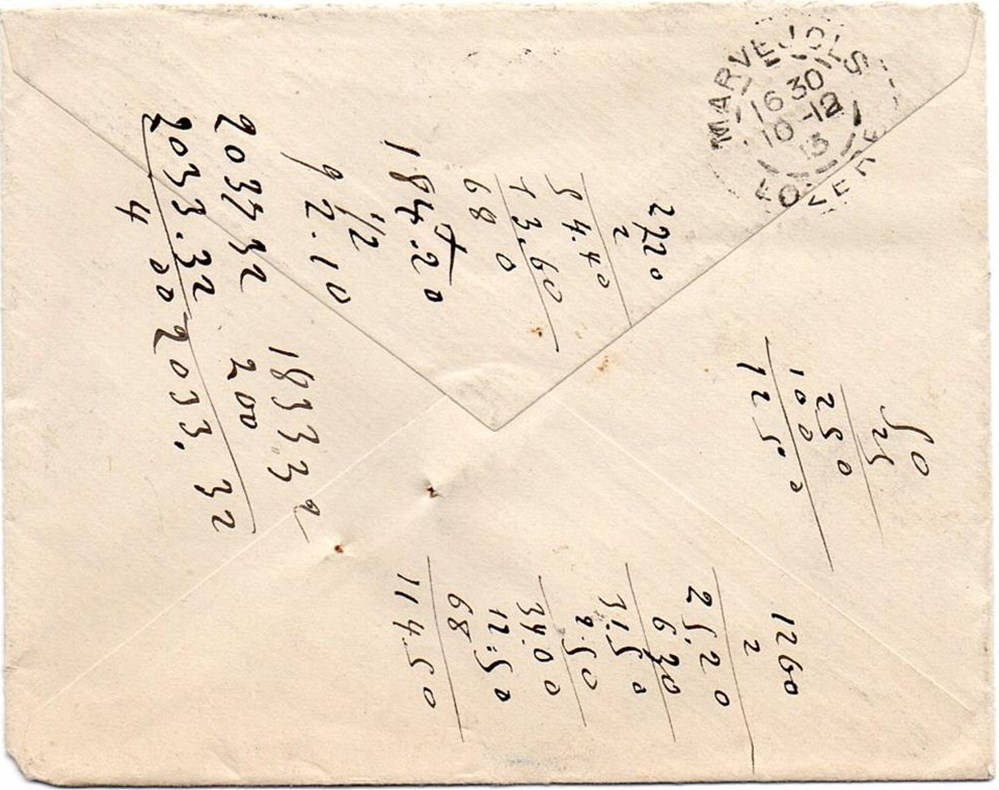 MARVEJOLS
16 30
10 -12
13
LOZERE
2720
2
54.40
13.60
68 0
184.20
9 1/2
2.10
2033 32
2033.32
4 00
1833 32
200
2033.32
50
25
250
100
1250
1260
2
25.20
6 30
31.50
2.50
34.00
12.50
68
114.50